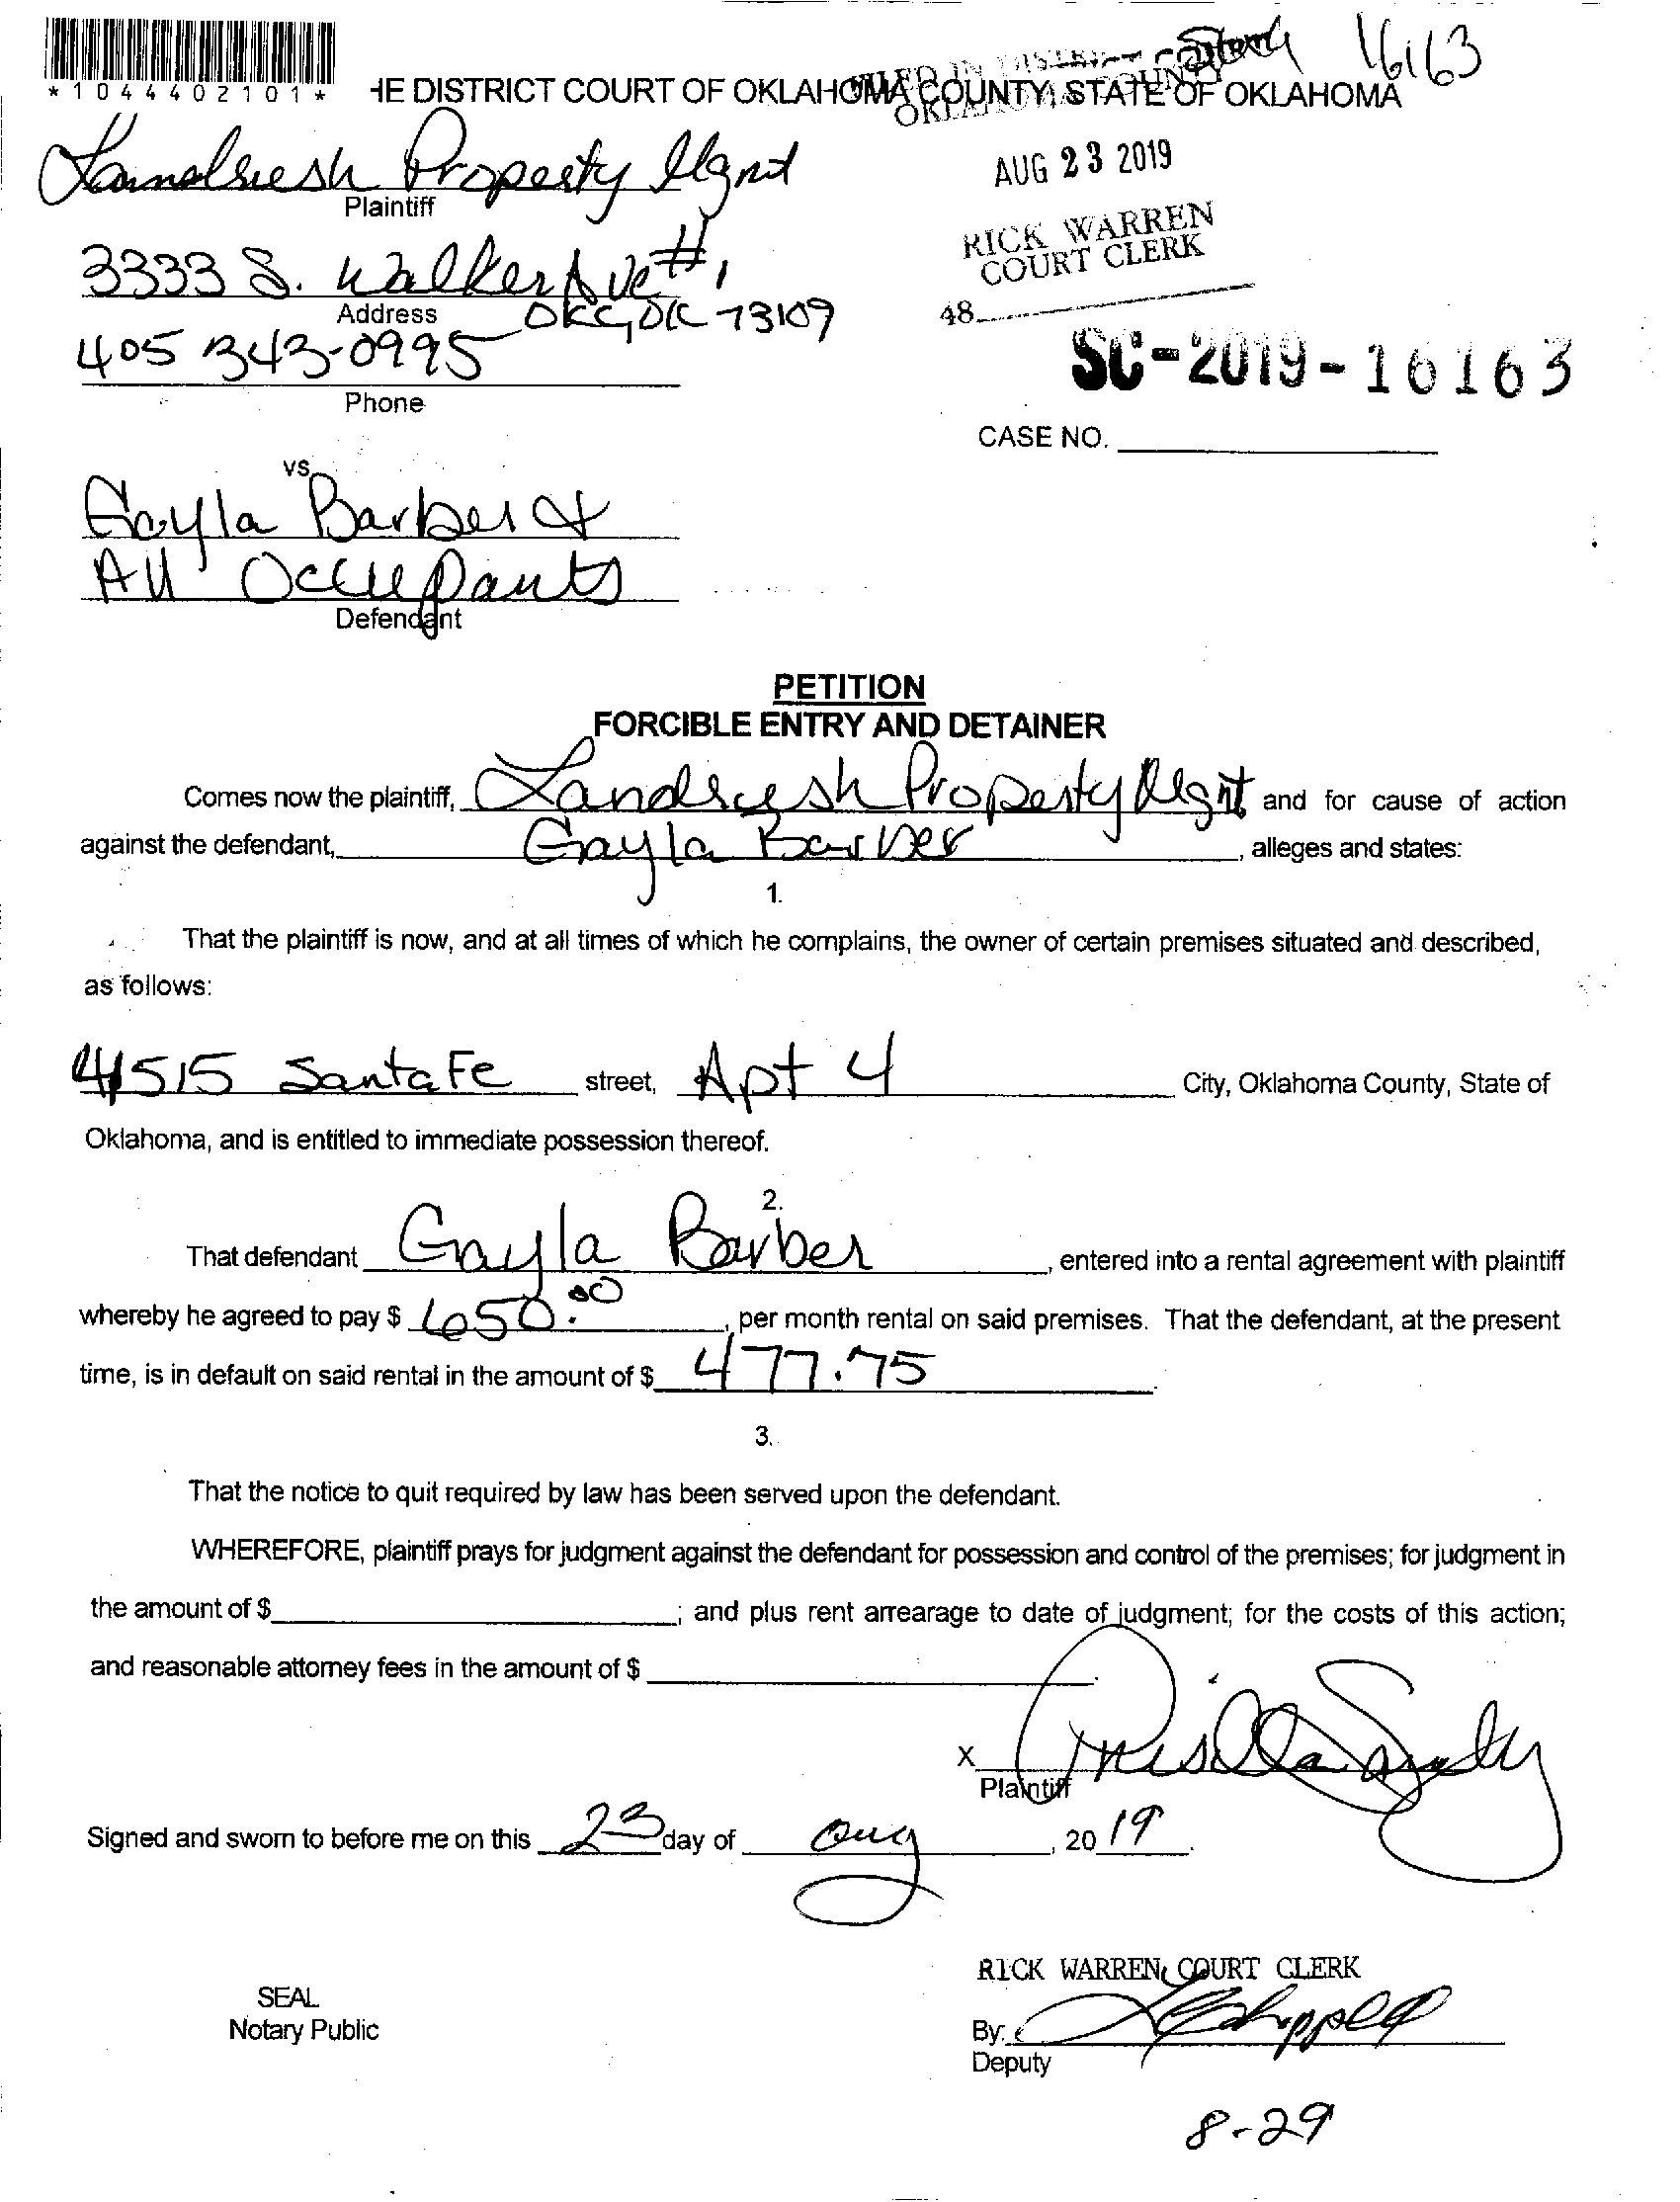 *1044402101*
HE DISTRICT COURT OF OKLAHOMA COUNTY, STATE OF OKLAHOMA
16163
FILED IN DISTRICT COURT
OKLAHOMA COUNTY
AUG 23 2019
RICK WARREN
COURT CLERK
48
SC-2019-16163
CASE NO.
Property Mgmt
Plaintiff
3333 S. Walker Ave #1
Address
OKC, OK 73109
405 343-0995
Phone
vs.
Gayla Barber &
All Occupants
Defendant
PETITION
FORCIBLE ENTRY AND DETAINER
Comes now the plaintiff, Property Mgmt and for cause of action
against the defendant, Gayla Barber, alleges and states:
1.
That the plaintiff is now, and at all times of which he complains, the owner of certain premises situated and described,
as follows:
4515 Santa Fe street, Apt 4 City, Oklahoma County, State of
Oklahoma, and is entitled to immediate possession thereof.
2.
That defendant Gayla Barber, entered into a rental agreement with plaintiff
whereby he agreed to pay $ 650.00, per month rental on said premises. That the defendant, at the present
time, is in default on said rental in the amount of $ 477.75.
3.
That the notice to quit required by law has been served upon the defendant.
WHEREFORE, plaintiff prays for judgment against the defendant for possession and control of the premises; for judgment in
the amount of $; and plus rent arrearage to date of judgment; for the costs of this action;
and reasonable attorney fees in the amount of $.
X Priscilla
Plaintiff
Signed and sworn to before me on this 23 day of Aug, 2019.
SEAL
Notary Public
RICK WARREN, COURT CLERK
By:
Deputy
8-29